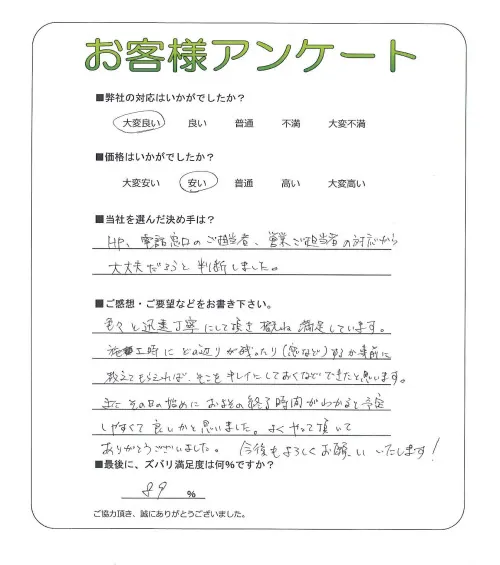 お客様アンケート
■弊社の対応はいかがでしたか？
大変良い 良い 普通 不満 大変不満
■価格はいかがでしたか？
大変安い 安い 普通 高い 大変高い
■当社を選んだ決め手は？
HP、電話窓口のご担当者、営業ご担当者の対応から
大丈夫だろうと判断しました。
■ご感想・ご要望などをお書き下さい。
色々と迅速丁寧にして頂き概ね満足しています。
施工時にどの辺りが残ったり(窓など)するか事前に
教えてもらえれば、そこをキレイにしておくなどできたと思います。
またその日の始めにおよその終了時間がわかると予定
しやすくて良いかと思いました。よくやって頂いて
ありがとうございました。 今後もよろしくお願いいたします!
■最後に、ズバリ満足度は何%ですか？
89 %
ご協力頂き、誠にありがとうございました。